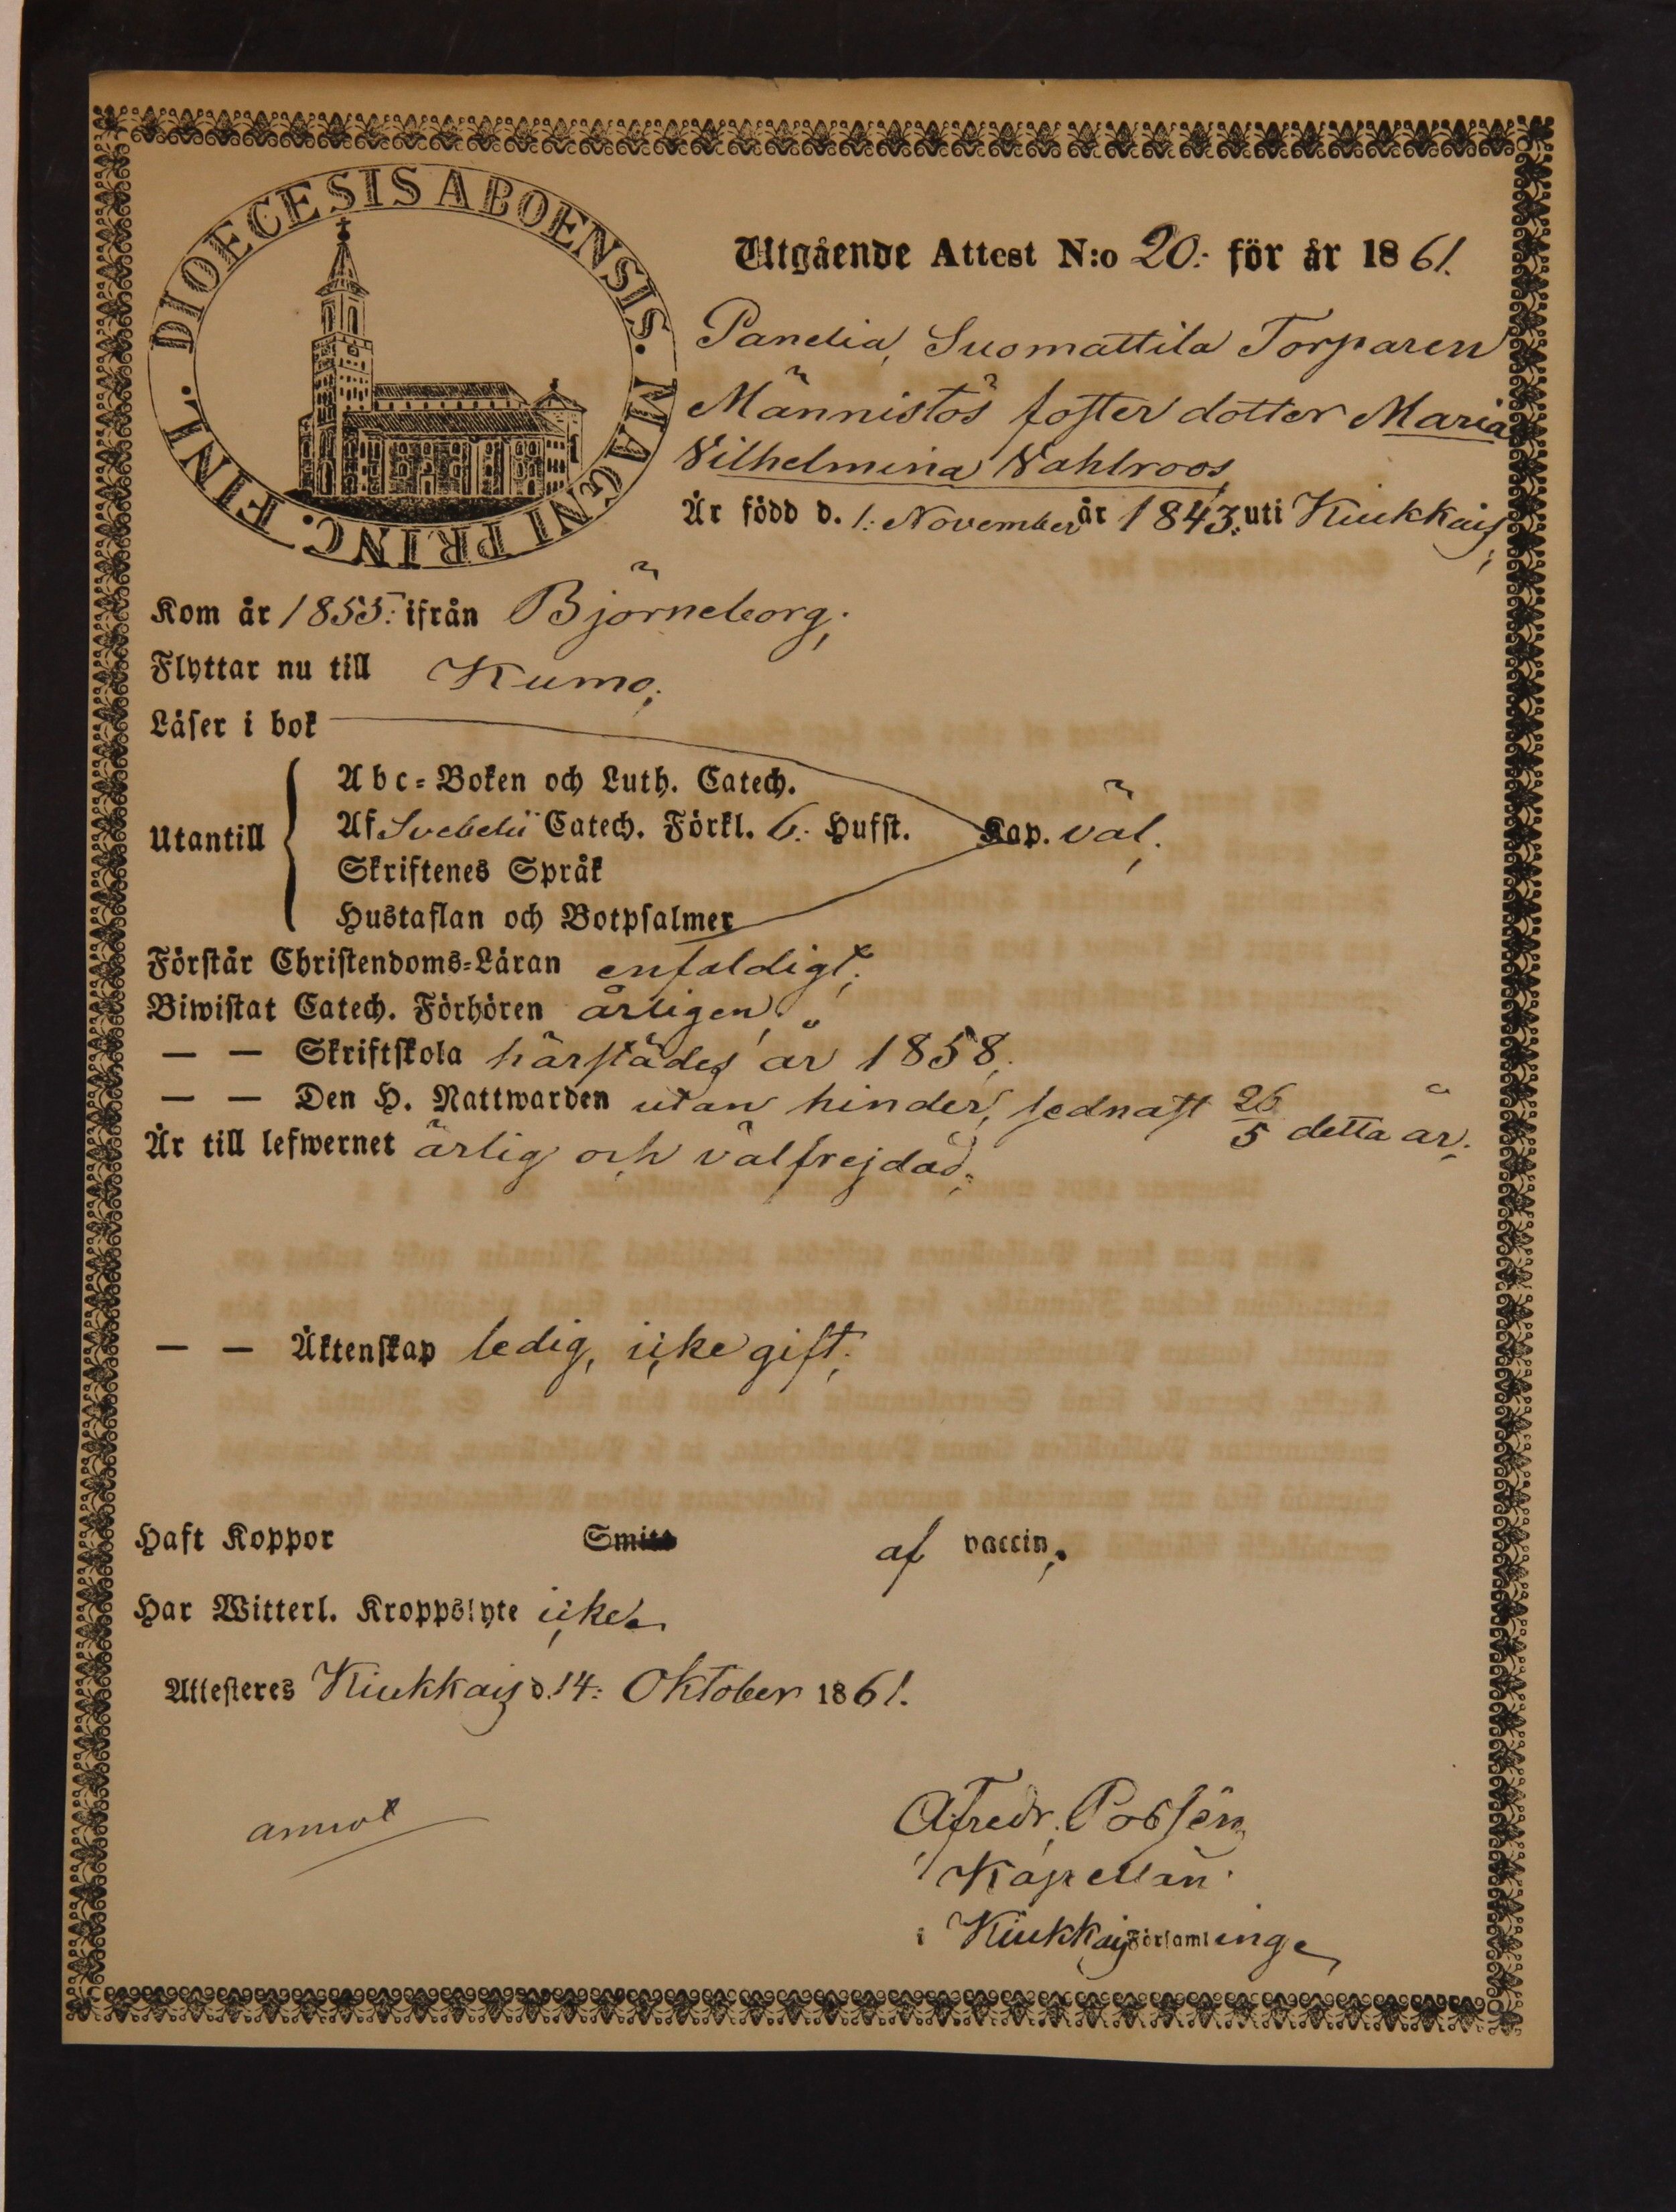 DIOECESIS ABOENSIS. MAGNI PRINC. FINL.
Utgående Attest N:o 20:- för år 1861.
Panelia, Suomattila Torparen
Männistös foster dotter Maria
Vilhelmina Vahlroos,
Är född d. 1: November år 1843. uti Kiukkais;
Kom år 1855: ifrån Björneborg;
Flyttar nu till Kumo;
Läser i bok
Utantill
Abc-Boken och Luth. Catech.
Af Svebelii Catech. Förkl. 6: Hufst. Kap. väl;
Skriftenes Språk
Hustaflan och Botpsalmer
Förstår Christendoms-Läran enfaldigt;
Biwistat Catech. Förhören årligen;
— — Skriftskola härstädes år 1858;
— — Den H. Nattwarden utan hinder, sednast 26/5 detta år;
Är till lefwernet ärlig och välfrejdad;
— — Äktenskap ledig, icke gift;
Haft Koppor af vaccin;
Har Witterl. Kroppslyte icke.
Attesteres Kiukkais d. 14: Oktober 1861.
annot
Kapellan
i Kiukkais Församlinge